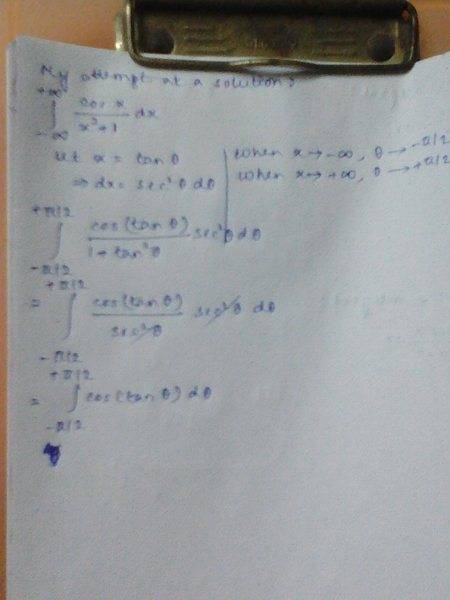 My attempt at a solution:
+∞
∫ cos x / x²+1 dx
-∞
Let x = tan θ
⇒ dx = sec² θ dθ
when x → -∞, θ → -π/2
when x → +∞, θ → +π/2
+π/2
∫ cos(tan θ) / 1 + tan² θ sec² θ dθ
-π/2
+π/2
= ∫ cos(tan θ) / sec² θ sec² θ dθ
-π/2
+π/2
= ∫ cos(tan θ) dθ
-π/2